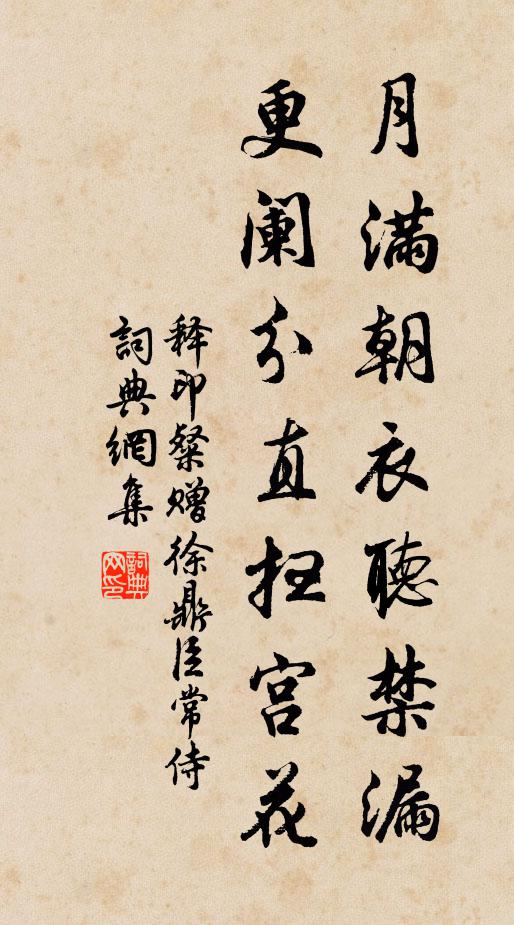 月滿朝衣聽禁漏
更闌分直扫宮花
釋印粲贈徐鼎臣常侍
詞典網集
詞典网印